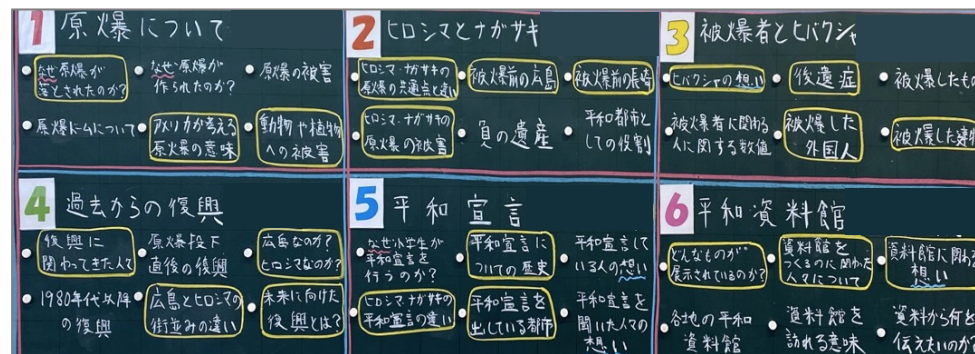 1 原爆について
なぜ原爆が
落とされたのか?
なぜ原爆が
作られたのか?
原爆の被害
原爆ドームについて
アメリカが考える
原爆の意味
動物や植物
への被害
2 ヒロシマとナガサキ
ヒロシマ・ナガサキの
原爆の共通点と違い
被爆前の広島
被爆前の長崎
ヒロシマ・ナガサキの
原爆の被害
負の遺産
平和都市と
しての役割
3 被爆者とヒバクシャ
ヒバクシャの想い
後遺症
被爆したもの
被爆者に関わる
人に関する数値
被爆した
外国人
被爆した建
4 過去からの復興
復興に
関わってきた人々
原爆投下
直後の復興
広島なのか?
ヒロシマなのか?
1980年代以降
の復興
広島とヒロシマの
街並みの違い
未来に向けた
復興とは?
5 平和宣言
なぜ小学生が
平和宣言を
行うのか?
平和宣言に
ついての歴史
平和宣言して
いる人の想い
ヒロシマ・ナガサキの
平和宣言の違い
平和宣言を
出している都市
平和宣言を
聞いた人々の
想い
6 平和資料館
どんなものが
展示されているのか?
資料館を
つくるのに関わった
人々について
資料館に関わ
想い
各地の平和
資料館
資料館を
訪れる意味
資料から何を
伝えたいのか